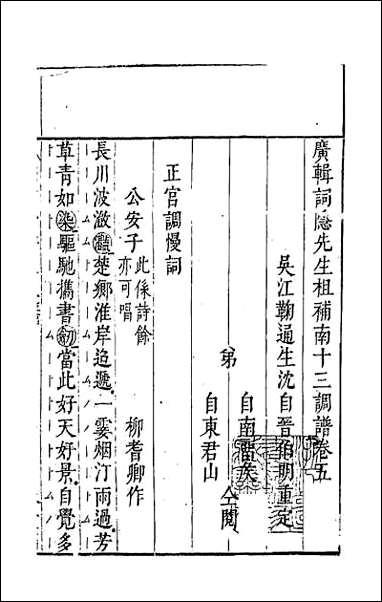 廣輯詞隱先生祖補南十三調譜卷五
吳江鞠通生沈自晉伯明重定
弟
自南
自東君山
仝閱
正宫調慢詞
公安子 此係詩餘亦可唱 柳耆卿作
長川波瀲灩楚鄉淮岸迢遞一霎烟汀雨過芳
草青如染驅馳攜書劒當此好天好景自覺多